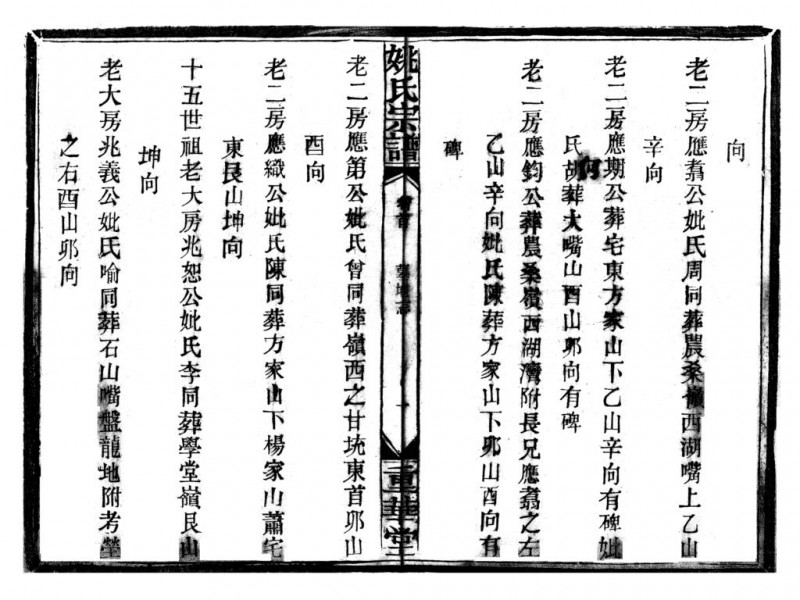 向
老二房應翥公妣氏周同葬農桑嶺西湖嘴上乙山
辛向
老二房應期公葬宅東方家山下乙山辛向有碑妣
氏胡葬大嘴山酉山卯向有碑
老二房應鈞公葬農桑嶺西湖灣附長兄應翥之左
乙山辛向妣氏陳葬方家山下卯山酉向有
碑
姚氏宗譜
卷首
墓地志
重華堂
老二房應第公妣氏曾同葬嶺西之甘坑東首卯山
酉向
老二房應織公妣氏陳同葬方家山下楊家山蕭宅
東艮山坤向
十五世祖老大房兆恕公妣氏李同葬學堂嶺艮山
坤向
老大房兆義公妣氏喻同葬石山嘴盤龍地附考塋
之右酉山卯向